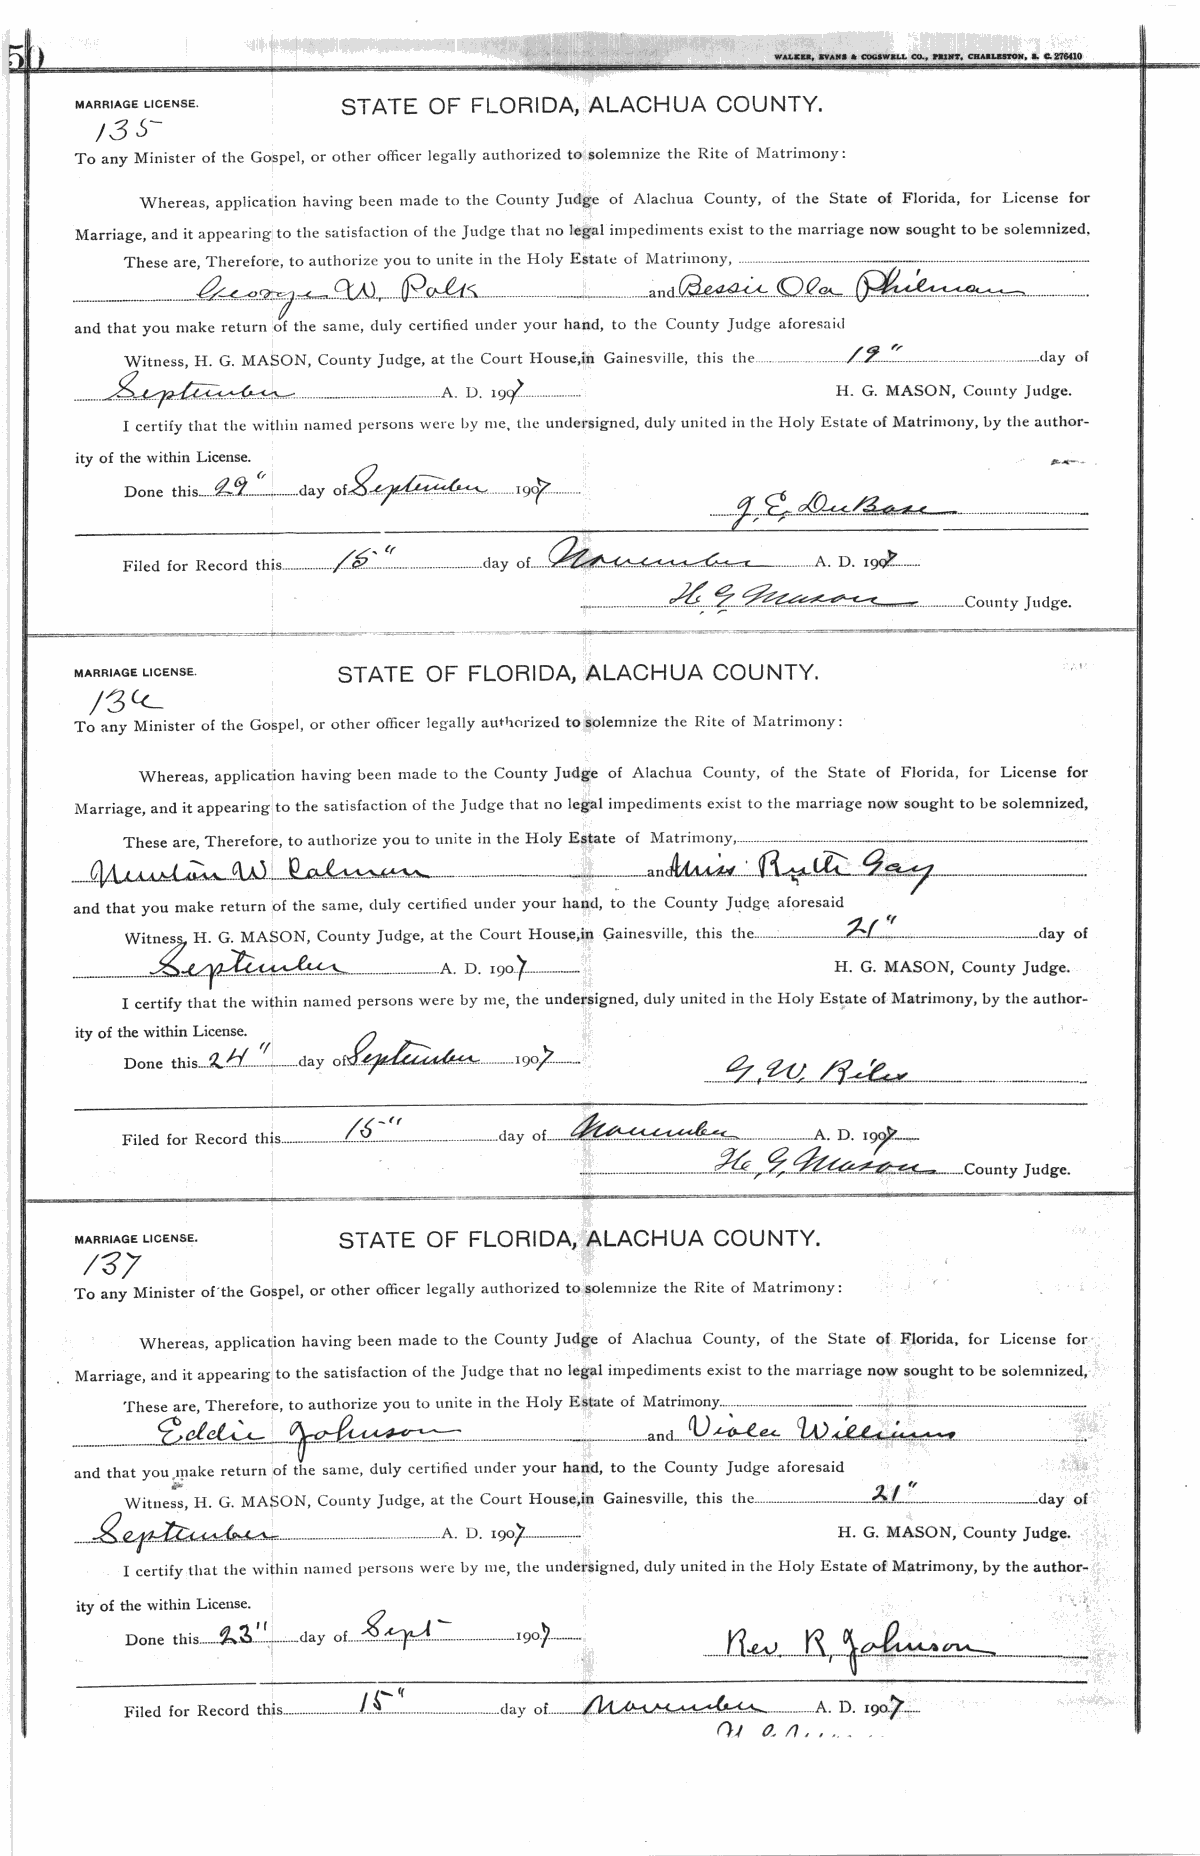 50
WALKER, EVANS & COGSWELL CO., PRINT, CHARLESTON, S. C. 276410
MARRIAGE LICENSE. STATE OF FLORIDA, ALACHUA COUNTY.
135
To any Minister of the Gospel, or other officer legally authorized to solemnize the Rite of Matrimony:
Whereas, application having been made to the County Judge of Alachua County, of the State of Florida, for License for
Marriage, and it appearing to the satisfaction of the Judge that no legal impediments exist to the marriage now sought to be solemnized,
These are, Therefore, to authorize you to unite in the Holy Estate of Matrimony,
George W. Polk and Bessie Ola Philman
and that you make return of the same, duly certified under your hand, to the County Judge aforesaid
Witness, H. G. MASON, County Judge, at the Court House, in Gainesville, this the 19" day of
September A. D. 1907 H. G. MASON, County Judge.
I certify that the within named persons were by me, the undersigned, duly united in the Holy Estate of Matrimony, by the author-
ity of the within License.
Done this 29" day of September 1907
J. E. DuBose
Filed for Record this 15" day of November A. D. 1907
H. G. Mason County Judge.
MARRIAGE LICENSE. STATE OF FLORIDA, ALACHUA COUNTY.
136
To any Minister of the Gospel, or other officer legally authorized to solemnize the Rite of Matrimony:
Whereas, application having been made to the County Judge of Alachua County, of the State of Florida, for License for
Marriage, and it appearing to the satisfaction of the Judge that no legal impediments exist to the marriage now sought to be solemnized,
These are, Therefore, to authorize you to unite in the Holy Estate of Matrimony,
Newton W Colman and Miss Ruth Gay
and that you make return of the same, duly certified under your hand, to the County Judge aforesaid
Witness, H. G. MASON, County Judge, at the Court House, in Gainesville, this the 21" day of
September A. D. 1907 H. G. MASON, County Judge.
I certify that the within named persons were by me, the undersigned, duly united in the Holy Estate of Matrimony, by the author-
ity of the within License.
Done this 24" day of September 1907
G. W. Riles
Filed for Record this 15" day of November A. D. 1907
H. G. Mason County Judge.
MARRIAGE LICENSE. STATE OF FLORIDA, ALACHUA COUNTY.
137
To any Minister of the Gospel, or other officer legally authorized to solemnize the Rite of Matrimony:
Whereas, application having been made to the County Judge of Alachua County, of the State of Florida, for License for
Marriage, and it appearing to the satisfaction of the Judge that no legal impediments exist to the marriage now sought to be solemnized,
These are, Therefore, to authorize you to unite in the Holy Estate of Matrimony
Eddie Johnson and Viola Williams
and that you make return of the same, duly certified under your hand, to the County Judge aforesaid
Witness, H. G. MASON, County Judge, at the Court House, in Gainesville, this the 21" day of
September A. D. 1907 H. G. MASON, County Judge.
I certify that the within named persons were by me, the undersigned, duly united in the Holy Estate of Matrimony, by the author-
ity of the within License.
Done this 23" day of Sept 1907
Rev. R, Johnson
Filed for Record this 15" day of November A. D. 1907